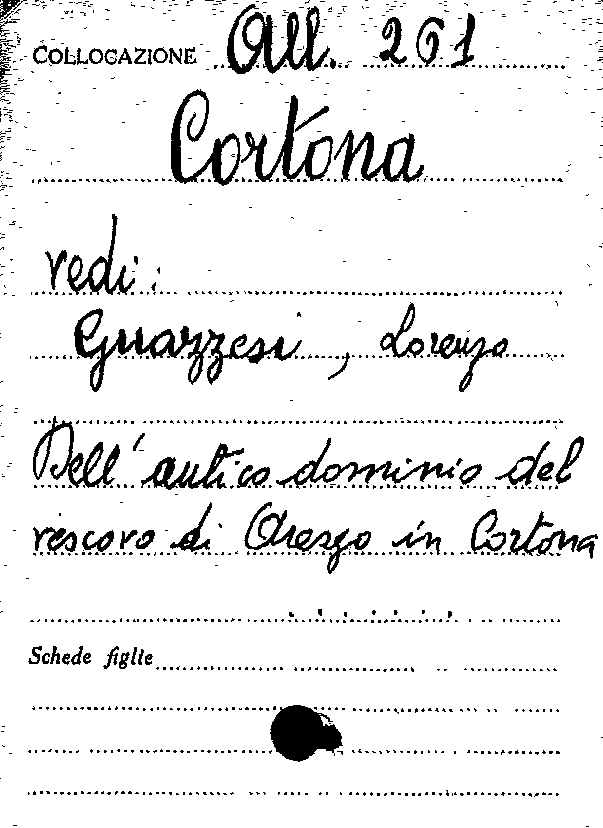 COLLOCAZIONE All. 261
Cortona
vedi:
Guazzesi, Lorenzo
Dell'antico dominio del
vescovo di Arezzo in Cortona
Schede figlie